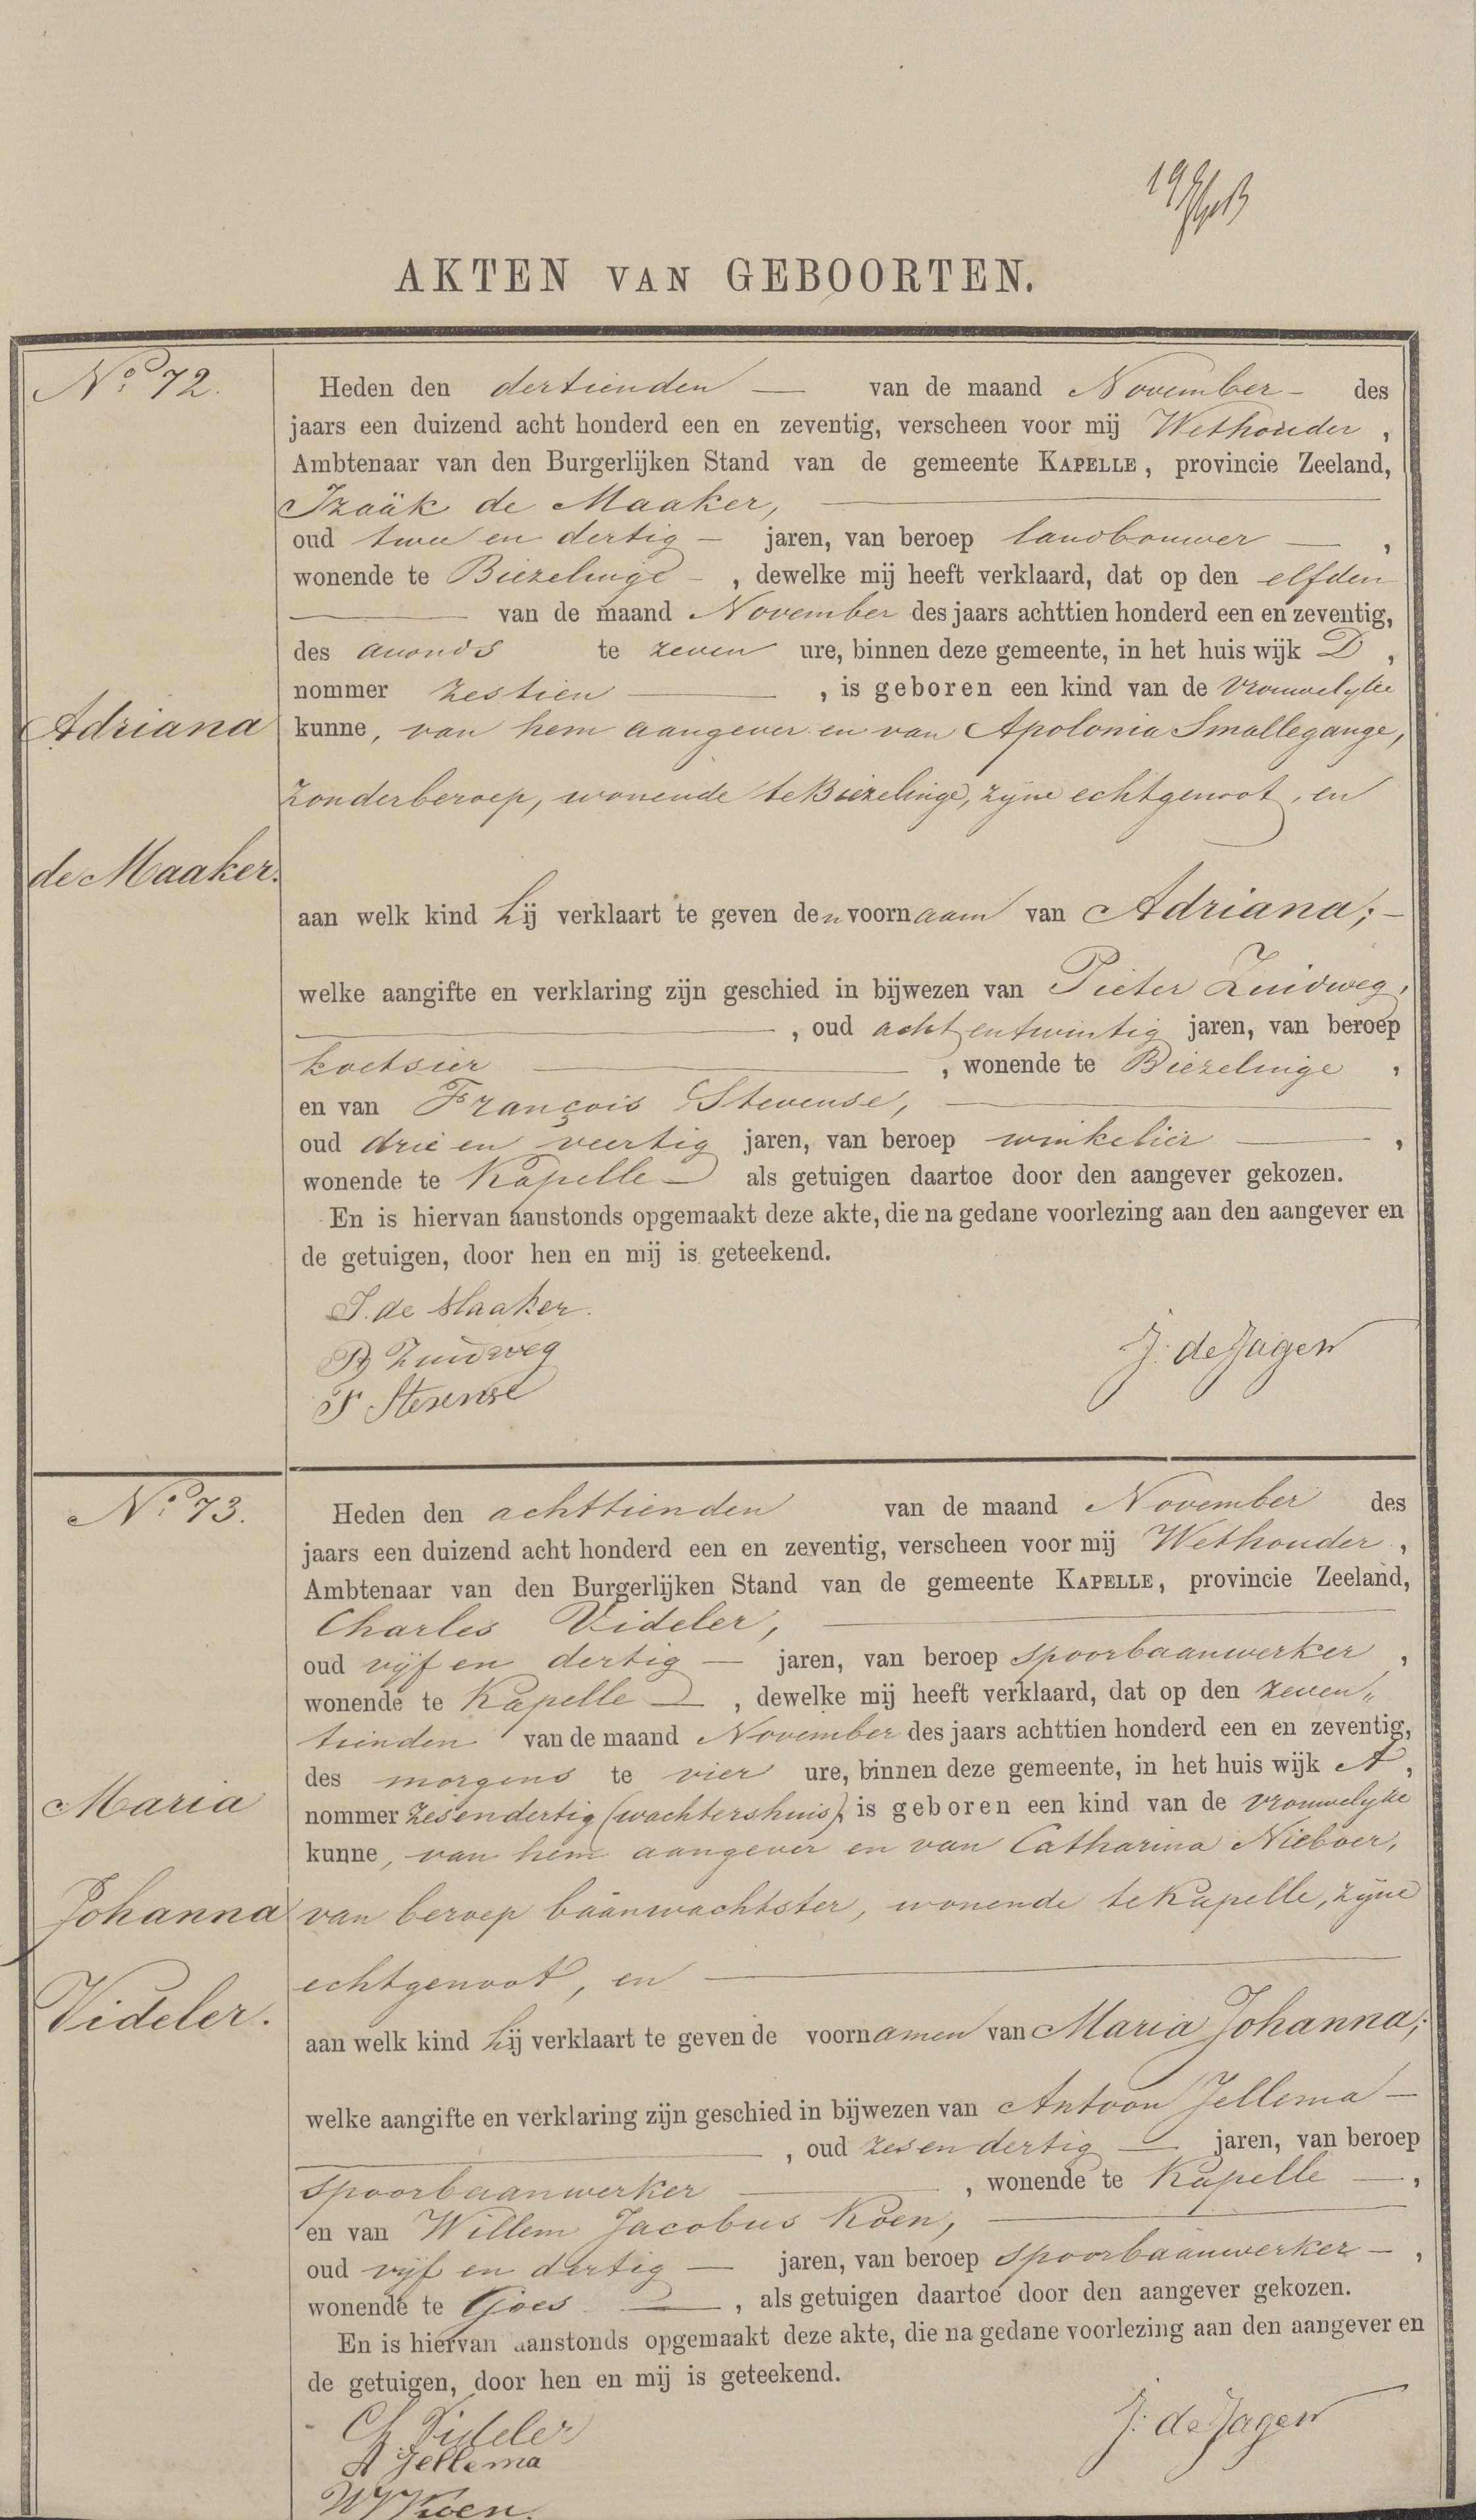 AKTEN VAN GEBOORTEN.
No. 72.
Heden den dertienden — van de maand November — des
jaars een duizend acht honderd een en zeventig, verscheen voor mij Wethouder ,
Ambtenaar van den Burgerlijken Stand van de gemeente KAPELLE, provincie Zeeland,
Izaäk de Maaker, —
oud twee en dertig — jaren, van beroep landbouwer — ,
wonende te Biezelinge - , dewelke mij heeft verklaard, dat op den elfden
— van de maand November des jaars achttien honderd een en zeventig,
des avonds te zeven ure, binnen deze gemeente, in het huis wijk D ,
nommer zestien — , is geboren een kind van de vrouwelyke
Adriana
kunne, van hem aangever en van Apolonia Smallegange,
zonder beroep, wonende te Biezelinge, zyne echtgenoot, en
de Maaker.
aan welk kind hij verklaart te geven den voornaam van Adriana; —
welke aangifte en verklaring zijn geschied in bijwezen van Pieter Zuidweg,
— , oud acht en twintig jaren, van beroep
koetsier — , wonende te Biezelinge ,
en van François Stevense, —
oud drie en veertig jaren, van beroep winkelier — ,
wonende te Kapelle — als getuigen daartoe door den aangever gekozen.
En is hiervan aanstonds opgemaakt deze akte, die na gedane voorlezing aan den aangever en
de getuigen, door hen en mij is geteekend.
I. de Maaker.
P Zuidweg
J: de Jager
F Stevense
No. 73.
Heden den achttienden van de maand November des
jaars een duizend acht honderd een en zeventig, verscheen voor mij Wethouder ,
Ambtenaar van den Burgerlijken Stand van de gemeente KAPELLE, provincie Zeeland,
Charles Videler, —
oud vijf en dertig — jaren, van beroep spoorbaanwerker ,
wonende te Kapelle — , dewelke mij heeft verklaard, dat op den zeven„
tienden van de maand November des jaars achttien honderd een en zeventig,
des morgens te vier ure, binnen deze gemeente, in het huis wijk A ,
Maria
nommer zesendertig (wachtershuis), is geboren een kind van de vrouwelyke
kunne, van hem aangever en van Catharina Nieboer,
Johanna
van beroep baanwachtster, wonende te Kapelle, zyne
echtgenoot, en —
Videler.
aan welk kind hij verklaart te geven de voornamen van Maria Johanna;
welke aangifte en verklaring zijn geschied in bijwezen van Antoon Jellema —
— , oud zes en dertig — jaren, van beroep
spoorbaanwerker — , wonende te Kapelle — ,
en van Willem Jacobus Koen, —
oud vijf en dertig — jaren, van beroep spoorbaanwerker — ,
wonende te Goes — , als getuigen daartoe door den aangever gekozen.
En is hiervan aanstonds opgemaakt deze akte, die na gedane voorlezing aan den aangever en
de getuigen, door hen en mij is geteekend.
Ch Videler
J: de Jager
A Jellema
W J Koen.